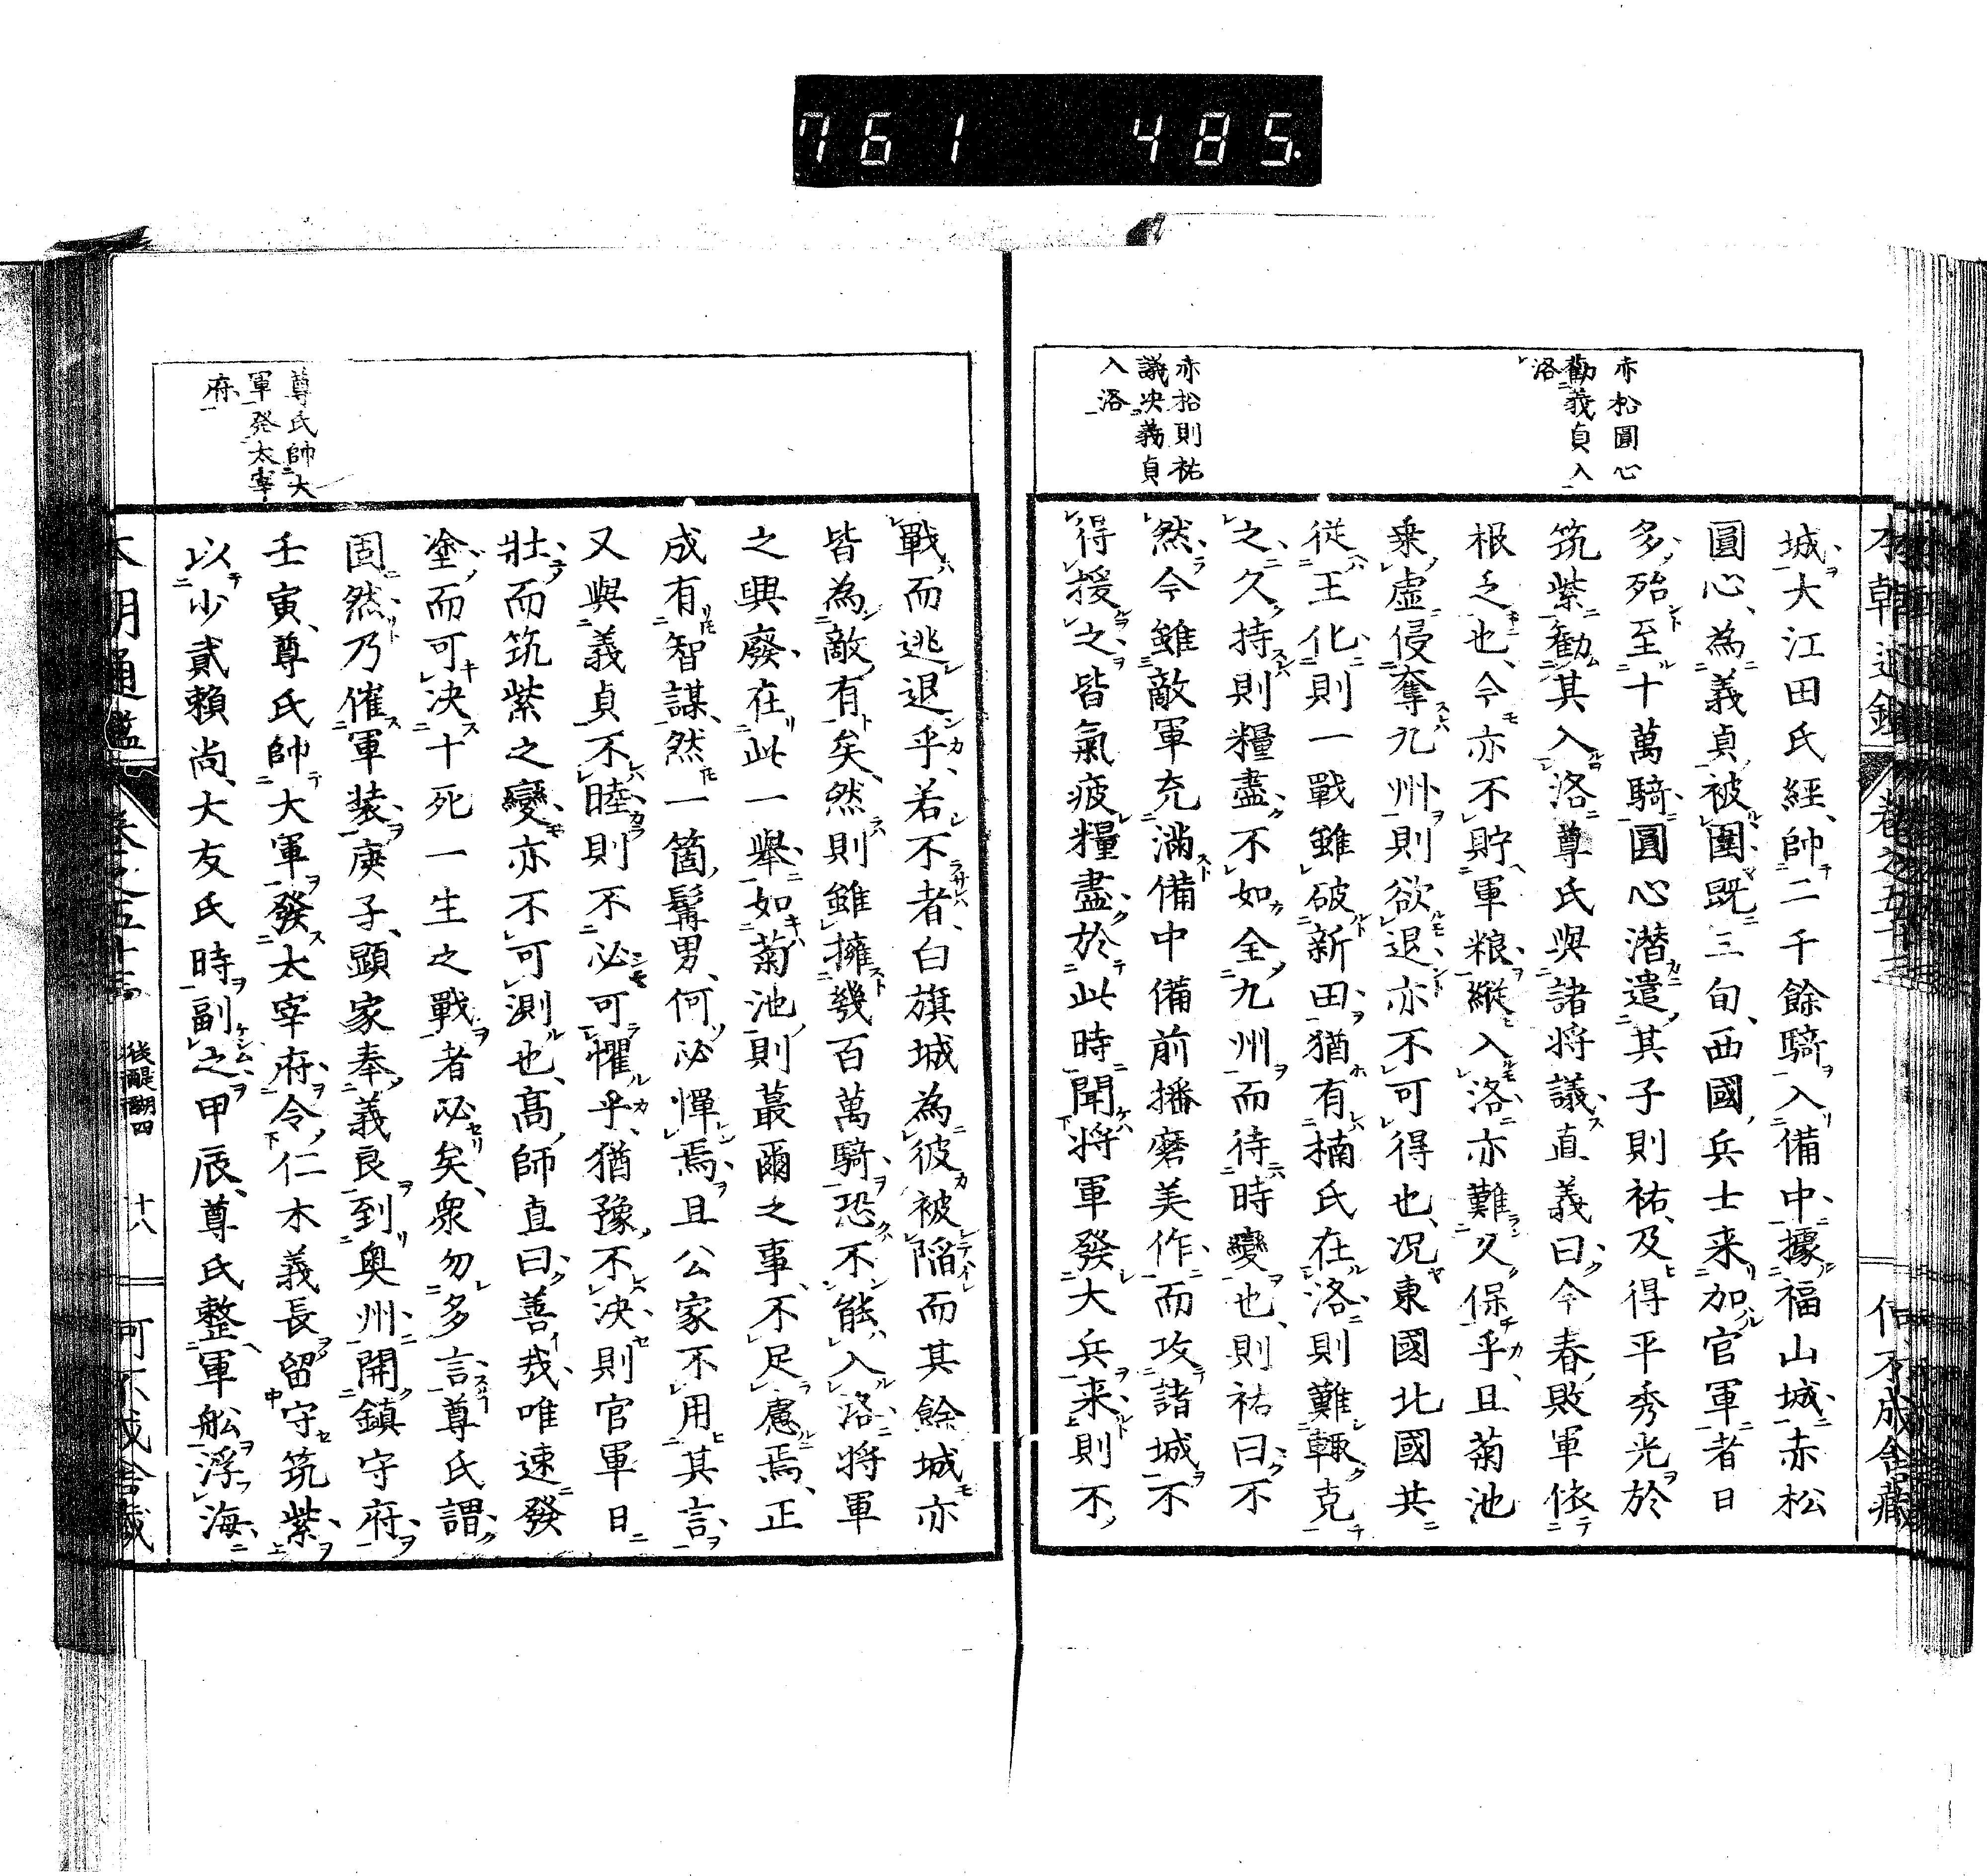 761 485.
赤松圓心
勸義貞入
洛
赤松則祐
議决義貞
入洛
城大江田氏經帥二千餘騎入備中據福山城赤松
圓心為義貞被圍既三旬西國兵士来加官軍者日
多殆至十萬騎圓心潜遣其子則祐及得平秀光於
筑紫勸其入洛尊氏與諸将議直義曰今春敗軍依
根乏也今亦不貯軍粮縦入洛亦難久保乎且菊池
乗虚侵奪九州則欲退亦不可得也况東國北國共
従王化則一戰雖破新田猶有楠氏在洛則難輙克
之久持則糧盡不如全九州而待時變也則祐曰不
然今雖敵軍充滿備中備前播磨美作而攻諸城不
得援之皆氣疲糧盡於此時聞将軍發大兵来則不
戰而逃退乎若不者白旗城為彼被陥而其餘城亦
皆為敵有矣然則雖擁幾百萬騎恐不能入洛将軍
之興廢在此一舉如菊池則蕞爾之事不足慮焉正
成有智謀然一箇髯男何必憚焉且公家不用其言
又與義貞不睦則不必可懼乎猶豫不决則官軍日
壮而筑紫之變亦不可測也髙師直曰善哉唯速發
塗而可决十死一生之戰者必矣衆勿多言尊氏謂
固然乃催軍装庚子顕家奉義良到奥州開鎮守府
壬寅尊氏帥大軍發太宰府令仁木義長留守筑紫
以少貳賴尚大友氏時副之甲辰尊氏整軍舩浮海
尊氏帥大
軍發太宰
府
本朝通鑑 卷之五十三 後醍醐四 十八 何不成舎蔵